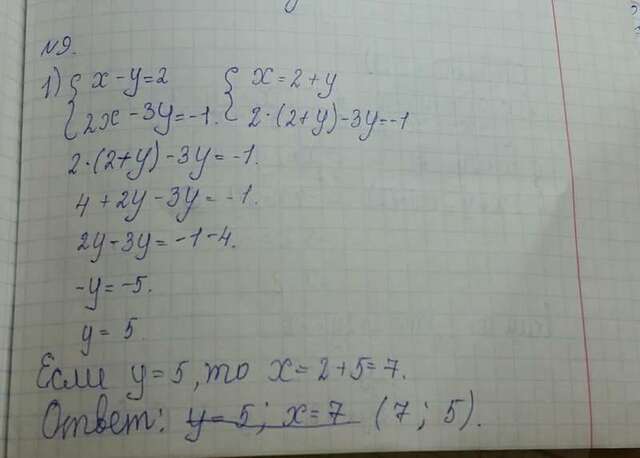 №9.
1) { x - y = 2 { x = 2 + y
2x - 3y = -1. 2·(2+y) - 3y = -1
2·(2+y) - 3y = -1.
4 + 2y - 3y = -1.
2y - 3y = -1 - 4.
-y = -5.
y = 5.
Если y = 5, то x = 2 + 5 = 7.
Ответ: y = 5; x = 7 (7; 5).